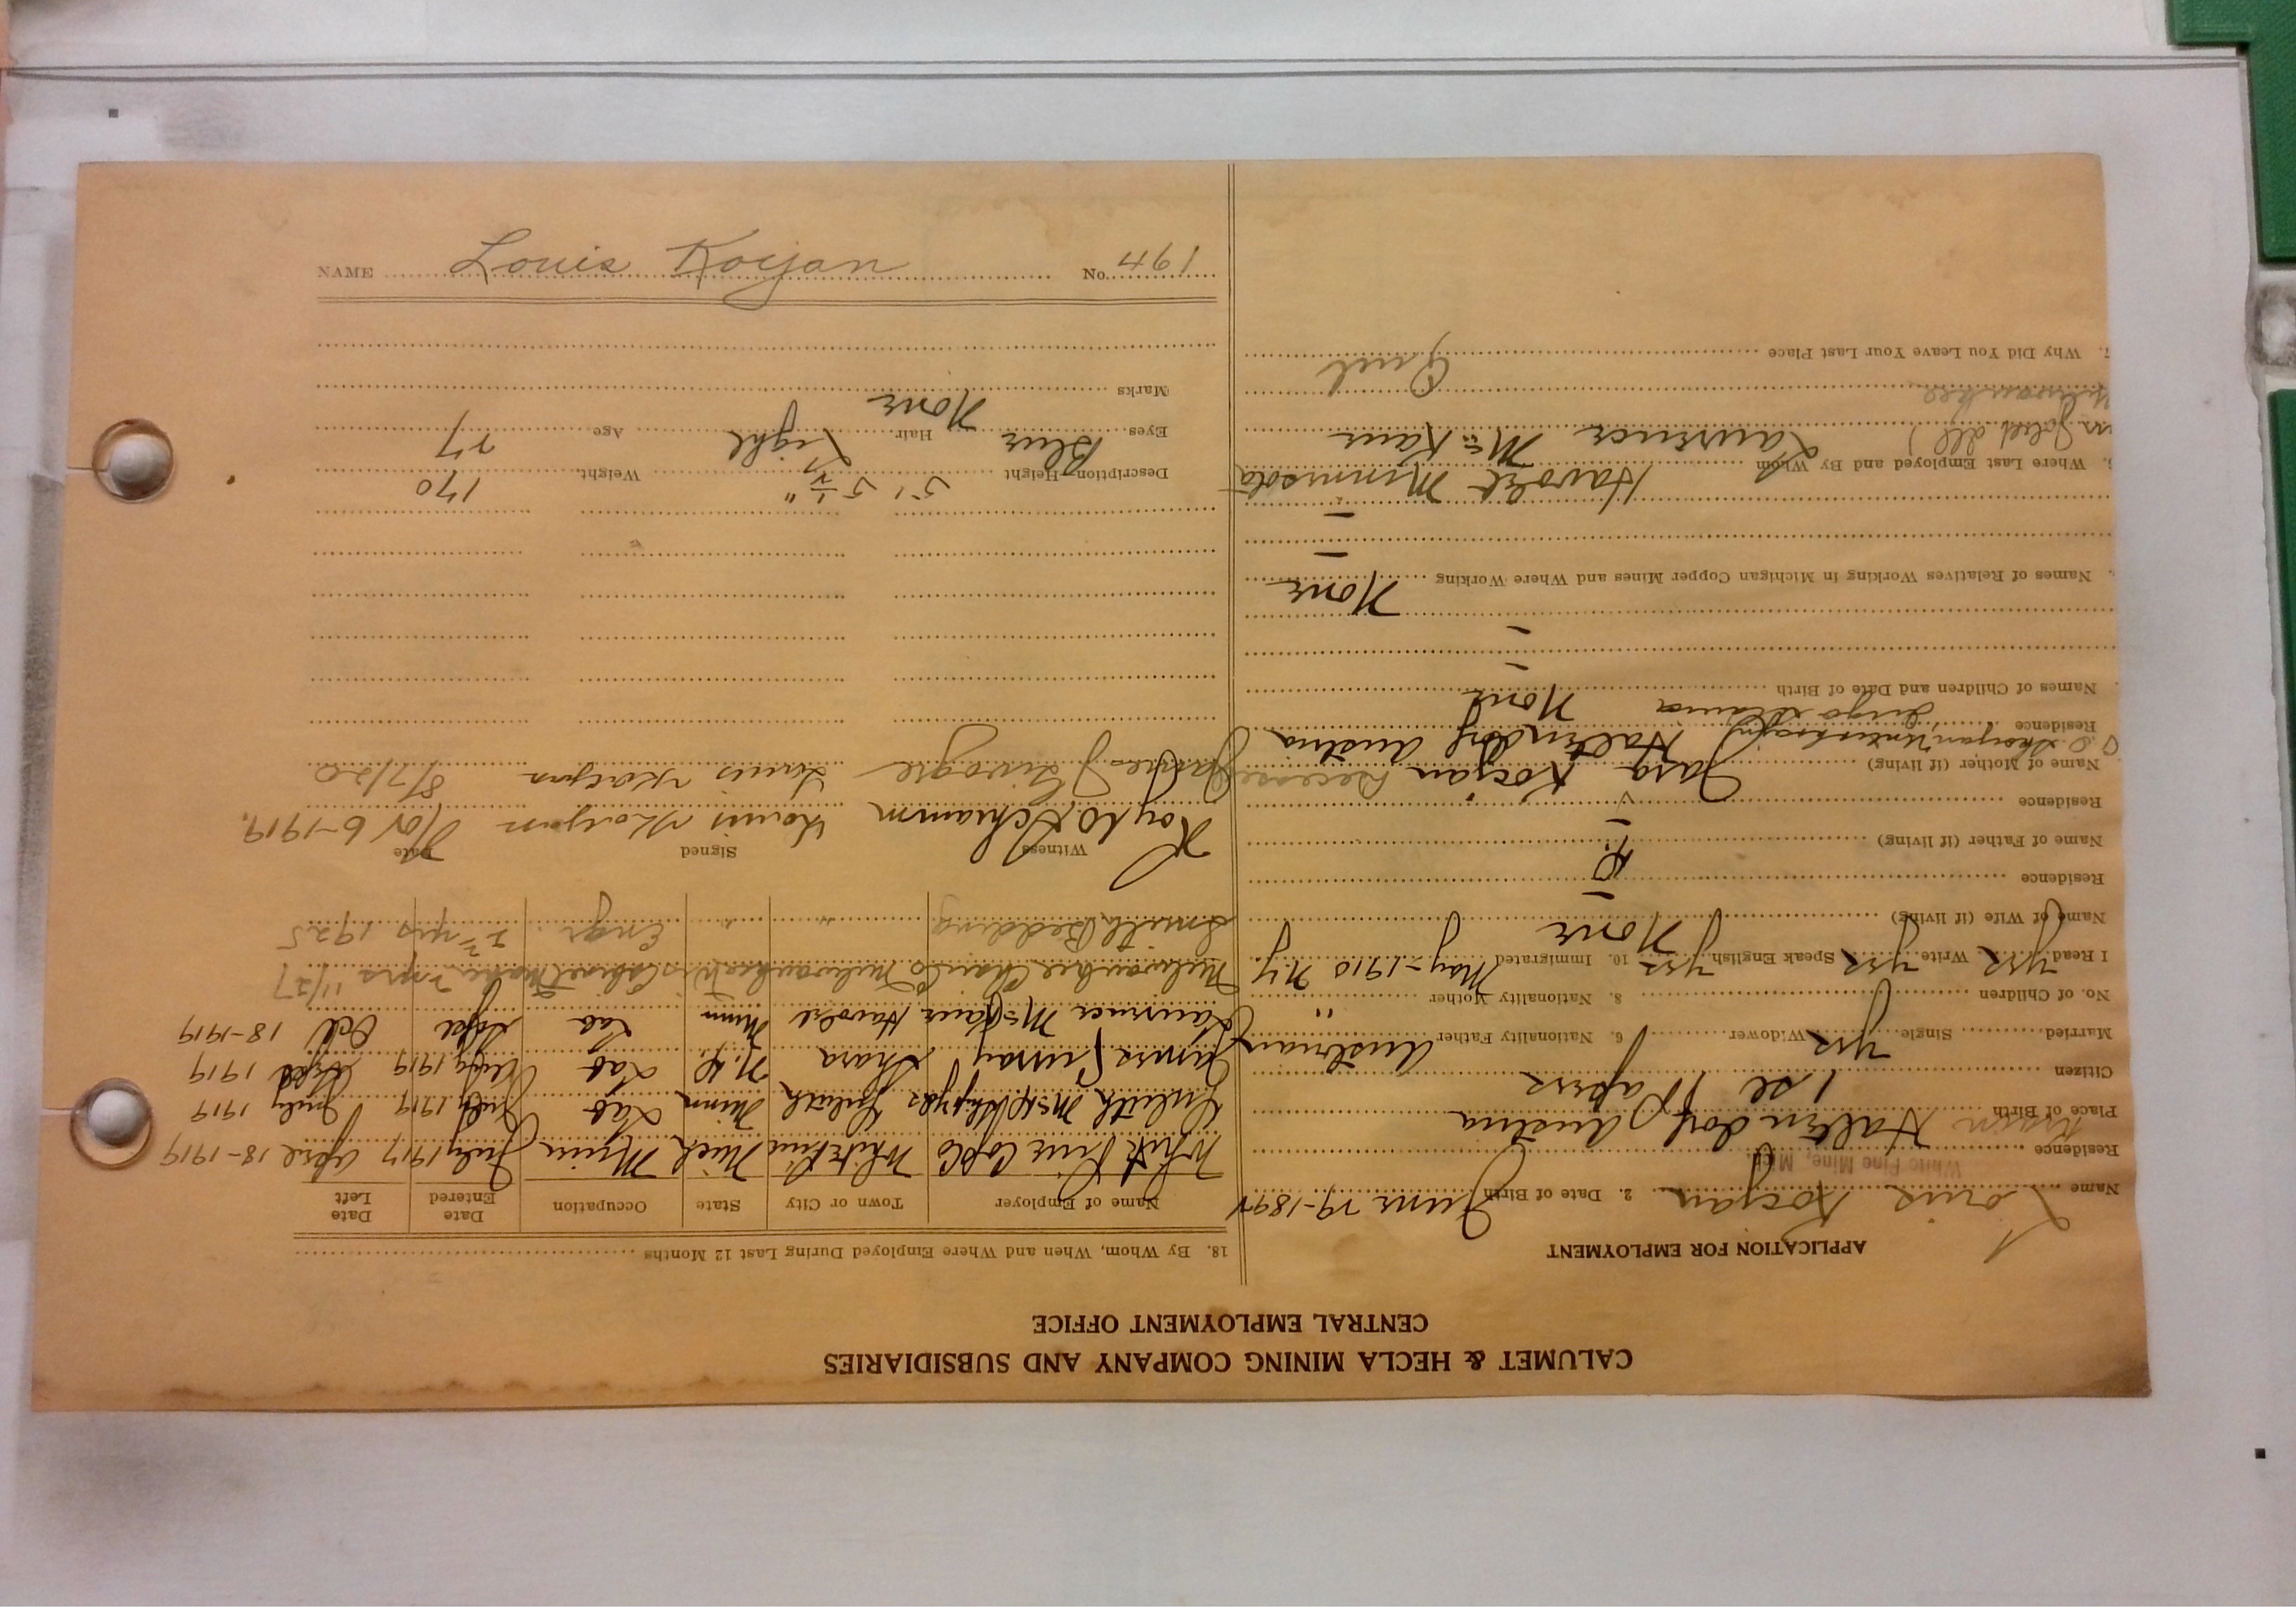 CALUMET & HECLA MINING COMPANY AND SUBSIDIARIES
CENTRAL EMPLOYMENT OFFICE
APPLICATION FOR EMPLOYMENT
Name Louis Kocjan 2. Date of Birth June 29-1892
White Pine Mine, Mich.
Residence
Place of Birth Haltendorf Austria
Krain
Citizen 1st Papers
Married Single yes Widower 6. Nationality Father Austrian
No. of Children 8. Nationality Mother "
I Read yes Write yes Speak English yes 10. Immigrated May-1910 N.Y.
Name of Wife (if living) None
Residence -
Name of Father (if living)
Residence
Name of Mother (if living) Kocjan Deceased
Residence Haltendorf Austria
Names of Children and Date of Birth None
-
-
Names of Relatives Working in Michigan Copper Mines and Where Working None
-
-
Where Last Employed and By Whom Minnesota
Laurence McKane
Milwaukee
7. Why Did You Leave Your Last Place Quit
18. By Whom, When and Where Employed During Last 12 Months
Name of Employer Town or City State Occupation Date Entered Date Left
White Pine Co White Pine Mich July 1917 Apr 18-1919
Duluth Duluth Minn Lab July 1919 July 1919
James Lab Aug 1919 1919
Laurence McKane Minn Lab Sept Oct 18-1919
Milwaukee Chair Co Milwaukee Wis Cabinet Maker 2 yrs 11/27
Smith Bedding " " Engr. yrs 1925
Witness Signed Date
Roy W. Schramm Louis Kocjan Nov 6-1919.
James Louis Kocjan 8/7/20
Description—Height 5' 5½" Weight 170
Eyes Blue Hair Light Age 27
Marks None
NAME Louis Kocjan No. 461